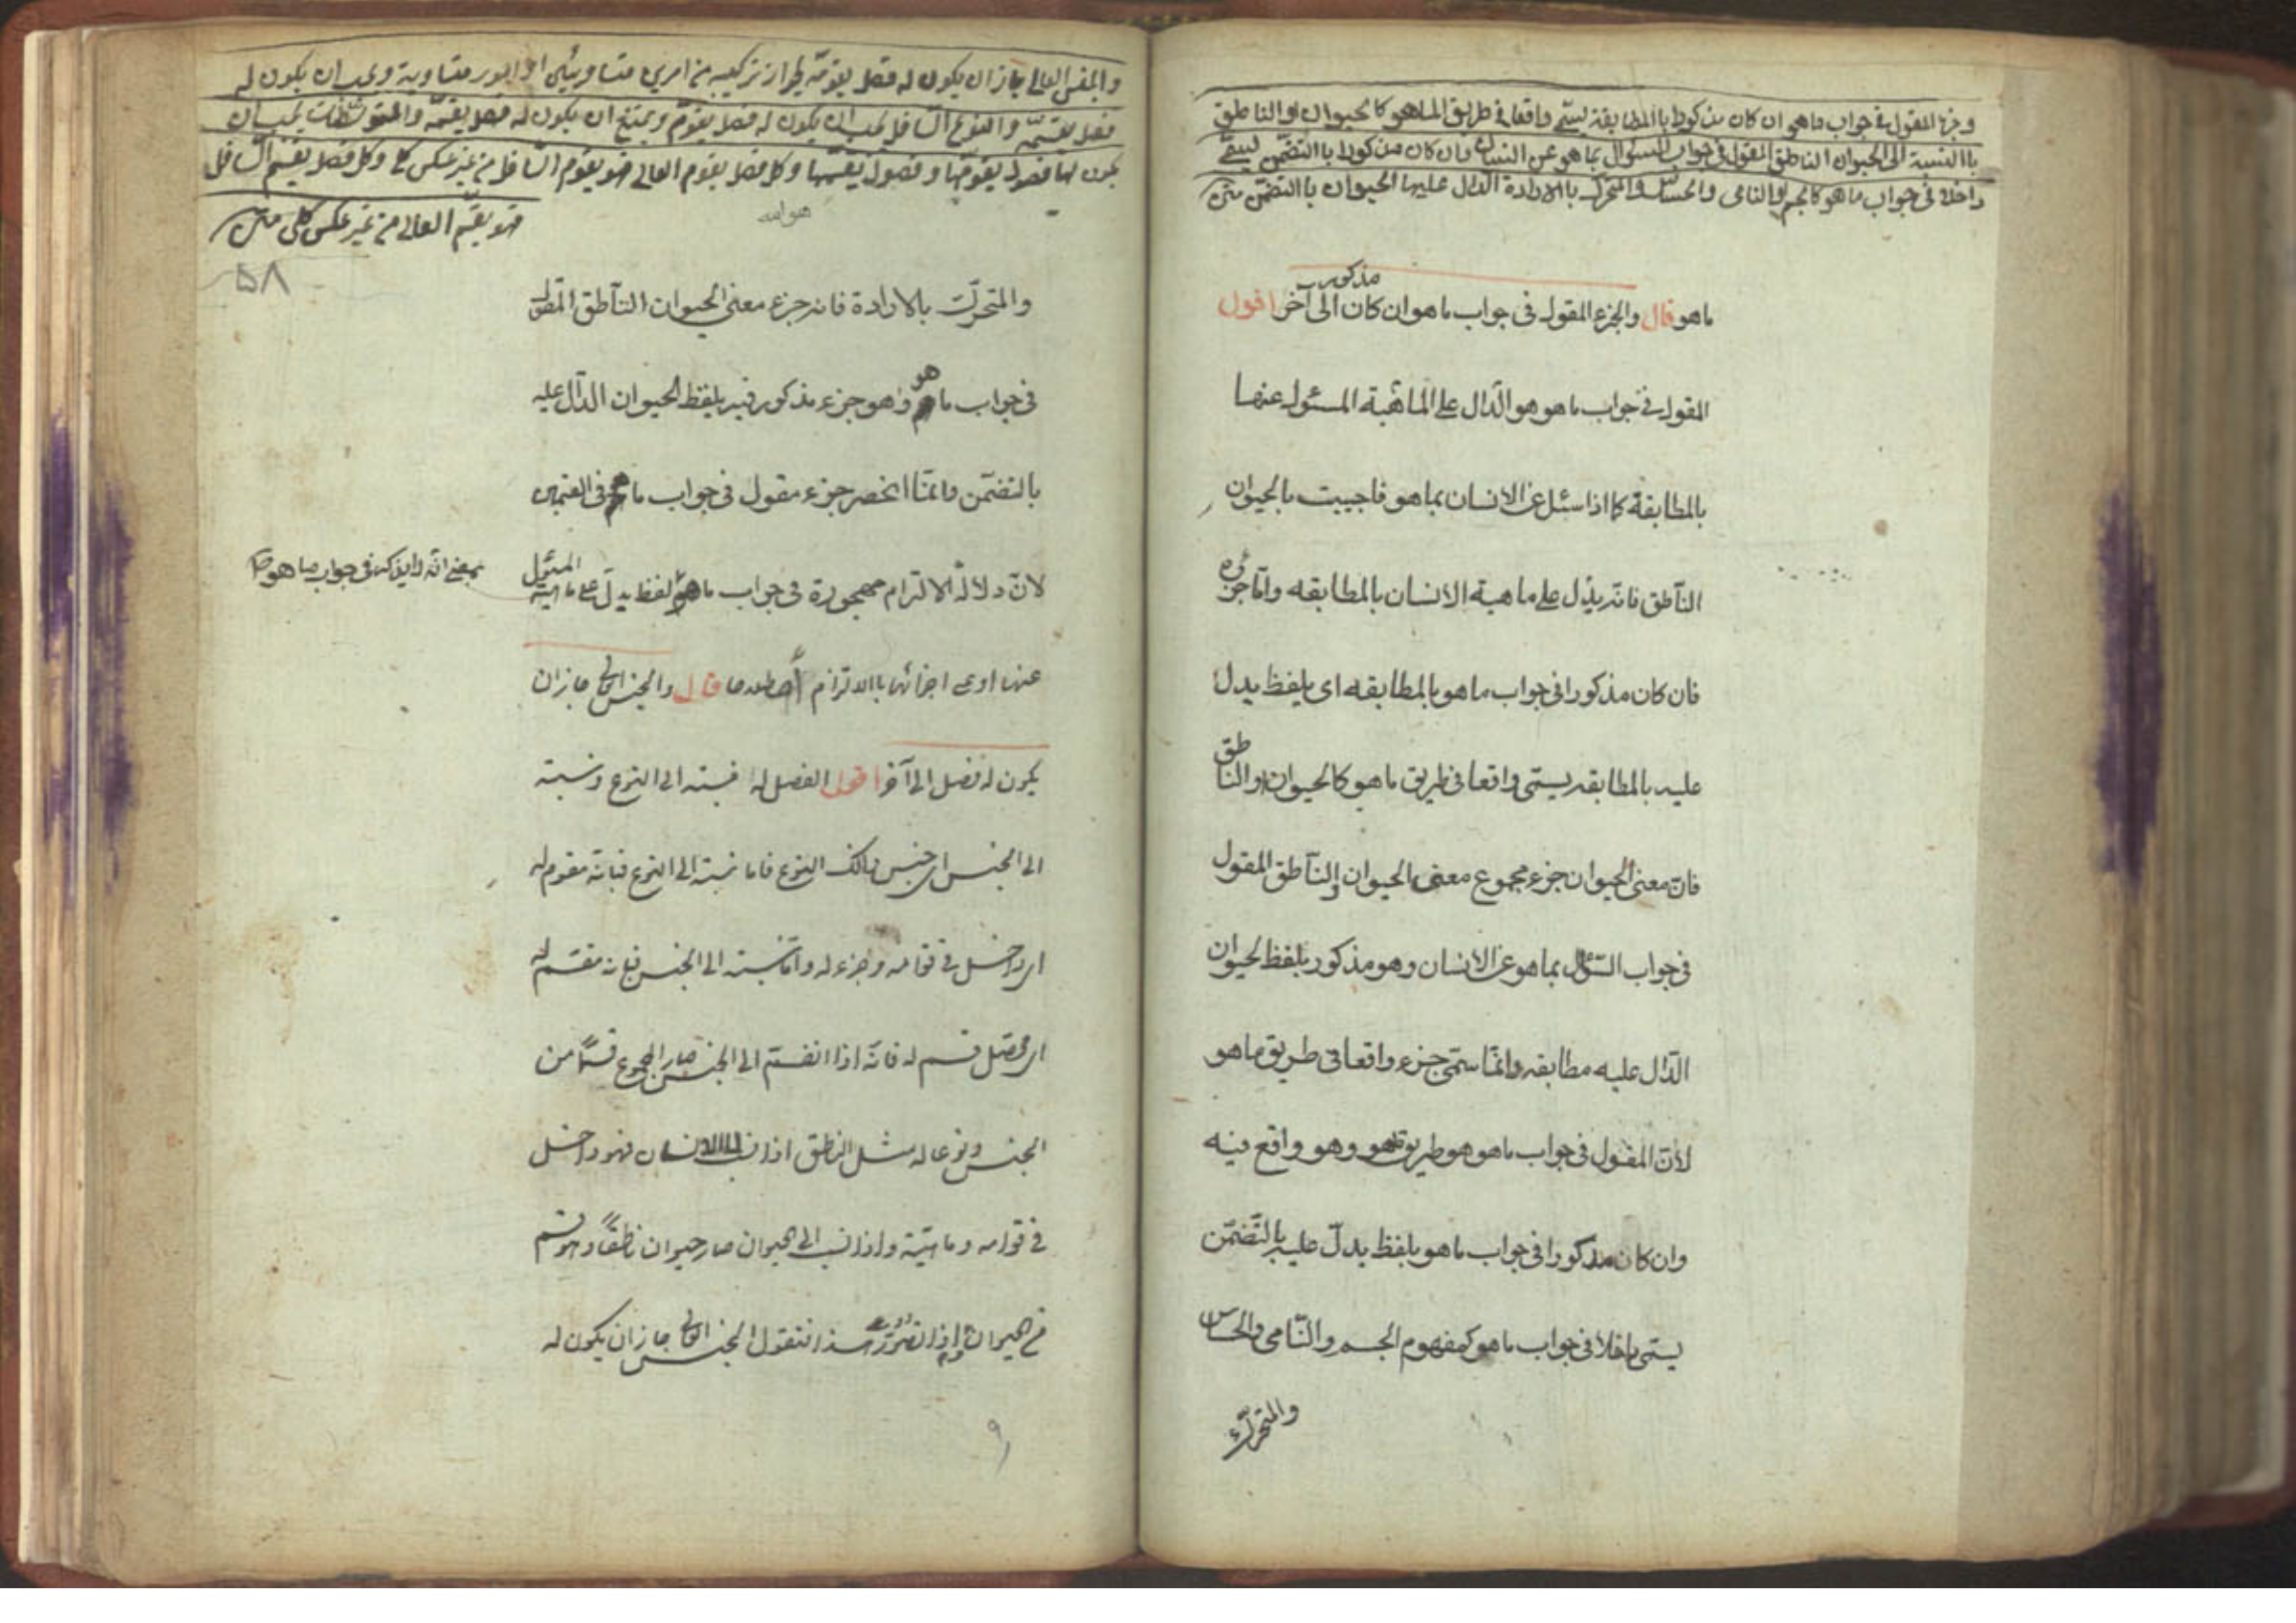 وجزء المقول في جواب ماهو ان كان مذكورا باالمطابقة يسمى واقعا في طريق الماهو كالحيوان او الناطق
باالنسبة الى الحيوان الناطق المقول في جواب السؤال بماهو عن الانسان وان كان مذكورا باالتضمن يسمى
داخلا في جواب ماهو كالجسم والنامى والحساس والمتحرك باالارادة الدال عليها الحيوان باالتضمن متن
مذكورا
ماهو قال والجزء المقول فى جواب ماهو ان كان الى آخر اقول
المقول فى جواب ماهو هو الدّال على الماهية المسئول عنها
بالمطابقة كما اذا سئل عن الانسان بماهو فاجيبت بالحيوان
النّاطق فانه يدل على ماهية الانسان بالمطابقه وامّا جزئه
فان كان مذكورا فى جواب ماهو بالمطابقه اى بلفظ يدل
عليه بالمطابقه يسمّى واقعا فى طريق ماهو كالحيوان او الناطق
فانّ معنى الحيوان جزء مجموع معنى الحيوان والنّاطق المقول
فى جواب السّؤال بماهو عن الانسان وهو مذكور بلفظ الحيوان
الدّال عليه مطابقه وانّما سمّى جزء واقعا فى طريق ماهو
لانّ المقول فى جواب ماهو هو طريق ماهو وهو واقع فيه
وان كان مذكورا فى جواب ماهو بلفظ يدلّ عليه بالتّضمّن
يسمّى داخلا فى جواب ماهو كمفهوم الجسم والنّامى والحساس
والمتحرّك
والجنس العالى جاز ان يكون له فصل يقومه لجواز تركيبه من امرين متساويين او امور متساوية ويجب ان يكون له
فصل يقسمه والنوع السافل يجب ان يكون له فصل يقوم ويمتنع ان يكون له فصل يقسمه والمتوسطات يجب ان
يكون لها فصول يقومها وفصول يقسمها وكل فصل يقوم العالى فهو يقوم السافل من غير عكس كلى وكل فصل يقسم السافل
فهو يقسم العالى من غير عكس كلى متن
هو الله
٥٨
والمتحرّك بالارادة فانه جزء معنى الحيوان النّاطق المقول
فى جواب ماهو وهو جزء مذكور فيه بلفظ الحيوان الدّال عليه
بالتضمّن وانّما انحصر جزء مقول فى جواب ماهو فى القسمين
لانّ دلالة الالتزام مهجورة فى جواب ماهو لفظ يدلّ على ماهية المسئول
بمعنى انّه لا يذكر فى جواب ماهو
عنها او على اجزائها باالالتزام اصطلاحا قال والجنس العالى جاز ان
يكون له فصل الى آخر اقول الفصل له نسبته الى النوع ونسبته
الى الجنس اى جنس ذلك النوع فاما نسبته الى النوع فبانّه مقوم له
اى داخل فى قوامه وجزء له وامّا نسبته الى الجنس فبانه مقسم له
اى محصّل قسم له فانّه اذا انضم الى الجنس صار المجموع قسمًا من
الجنس ونوعا له مثل الناطق اذا نسب الى الانسان فهو داخل
فى قوامه وماهيته واذا نسب الى الحيوان صار حيوان ناطقًا وهو قسم
من الحيوان واذا تصورت هذا فنقول الجنس العالى جاز ان يكون له
٩